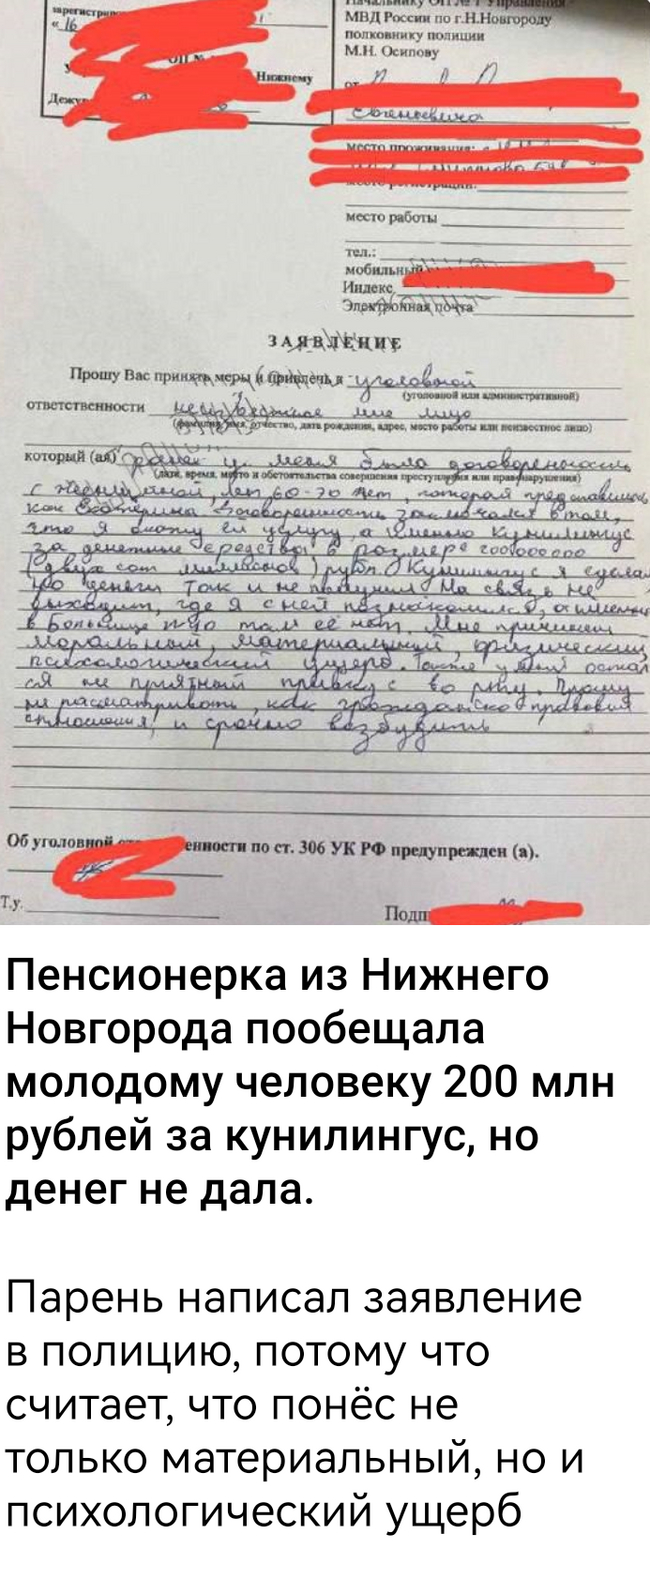 Начальнику ОП № 1 Управления
МВД России по г.Н.Новгороду
полковнику полиции
М.Н. Осипову
зарегистрир
« 16
ОП №
Нижнему
Дежу
от
Евгеньевича
место проживания:
место работы
тел.:
мобильный
Индекс
Электронная почта
ЗАЯВЛЕНИЕ
Прошу Вас принять меры и привлечь к уголовной
(уголовной или административной)
ответственности неизвестное мне лицо
(фамилия, имя, отчество, дата рождения, адрес, место работы или неизвестное лицо)
который (ая) у меня была договоренность
(дата, время, место и обстоятельства совершения преступления или правонарушения)
с женщиной, лет 60-70 лет, которая представилась
как Екатерина. Договоренность заключалась в том,
что я окажу ей услугу, а именно Кунилингус
за денежные средства в размере 200000000
(двух сот миллионов) рубл. Кунилингус я сделал
но денег так и не получил. На связь не
выходит, где я с ней познакомился, а именно
в больнице №10 там её нет. Мне причинен
моральный, материальный, физический,
психологический ущерб. Также у меня остал
ся не приятный привкус во рту. Прошу
не рассматривать, как гражданско правовые
отношения! и срочно возбудить
Об уголовной енности по ст. 306 УК РФ предупрежден (а).
Т.у.
Подп
Пенсионерка из Нижнего
Новгорода пообещала
молодому человеку 200 млн
рублей за кунилингус, но
денег не дала.
Парень написал заявление
в полицию, потому что
считает, что понёс не
только материальный, но и
психологический ущерб